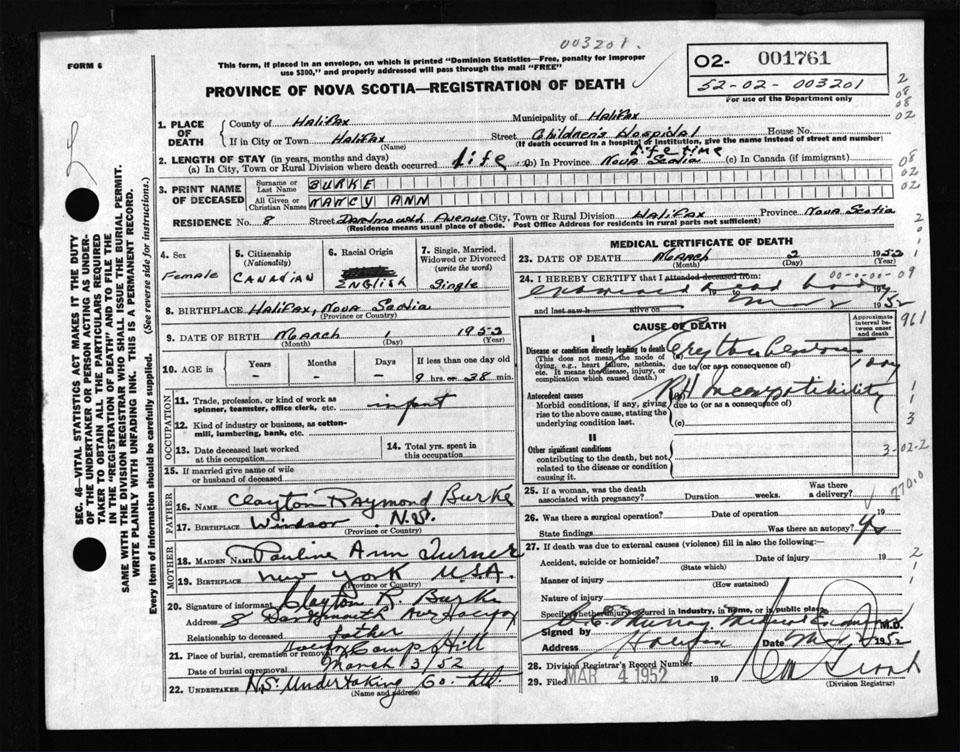 003201.
FORM 6
This form, if placed in an envelope, on which is printed "Dominion Statistics—Free, penalty for improper
use $300," and properly addressed will pass through the mail "FREE"
PROVINCE OF NOVA SCOTIA—REGISTRATION OF DEATH
02- 001761
52-02-003201
For use of the Department only
2
08
08
02
1. PLACE OF DEATH
County of Halifax Municipality of Halifax
If in City or Town Halifax Street Children's Hospital House No.
(Name) (If death occurred in a hospital or institution, give the name instead of street and number)
2. LENGTH OF STAY (in years, months and days)
(a) In City, Town or Rural Division where death occurred Life (b) In Province Life time Nova Scotia (c) In Canada (if immigrant)
08
02
02
3. PRINT NAME OF DECEASED
Surname or Last Name BURKE
All Given or Christian Names NANCY ANN
RESIDENCE No. 8 Street Dartmouth Avenue City, Town or Rural Division Halifax Province Nova Scotia
(Residence means usual place of abode. Post Office Address for residents in rural parts not sufficient)
SEC. 46—VITAL STATISTICS ACT MAKES IT THE DUTY
OF THE UNDERTAKER OR PERSON ACTING AS UNDER-
TAKER TO OBTAIN ALL THE PARTICULARS REQUIRED
IN THE "REGISTRATION OF DEATH" AND TO FILE THE
SAME WITH THE DIVISION REGISTRAR WHO SHALL ISSUE THE BURIAL PERMIT.
WRITE PLAINLY WITH UNFADING INK. THIS IS A PERMANENT RECORD.
Every item of information should be carefully supplied. (See reverse side for instructions.)
4. Sex
Female
5. Citizenship
(Nationality)
Canadian
6. Racial Origin
English
7. Single, Married,
Widowed or Divorced
(write the word)
Single
8. BIRTHPLACE Halifax, Nova Scotia
(Province or Country)
9. DATE OF BIRTH March 1 1952
(Month) (Day) (Year)
10. AGE in
Years Months Days If less than one day old
- - - 9 hrs. or 38 min.
OCCUPATION
11. Trade, profession, or kind of work as
spinner, teamster, office clerk, etc. infant
12. Kind of industry or business, as cotton-
mill, lumbering, bank, etc.
13. Date deceased last worked
at this occupation
14. Total yrs. spent in
this occupation
15. If married give name of wife
or husband of deceased
FATHER
16. NAME Clayton Raymond Burke
17. BIRTHPLACE Windsor, N.S.
(Province or Country)
MOTHER
18. MAIDEN NAME Pauline Ann Turner
19. BIRTHPLACE New York USA.
(Province or Country)
20. Signature of informant Clayton R. Burke
Address 8 Dartmouth Ave Halifax
Relationship to deceased father
21. Place of burial, cremation or removal Camp Hill
Date of burial or removal March 3/52
22. UNDERTAKER N.S. Undertaking Co. Ltd
(Name and address)
MEDICAL CERTIFICATE OF DEATH
23. DATE OF DEATH March 2 1952
(Month) (Day) (Year)
24. I HEREBY CERTIFY that I attended deceased from:
00-0-00-09
19 to 19
and last saw h alive on 2 1952
CAUSE OF DEATH
Approximate interval between onset and death
961
I
Disease or condition directly leading to death
(This does not mean the mode of
dying, e.g., heart failure, asthenia,
etc. It means the disease, injury, or
complication which caused death.)
due to (or as a consequence of) 1 day
Antecedent causes
Morbid conditions, if any, giving
rise to the above cause, stating the
underlying condition last.
RH Incompatibility
due to (or as a consequence of)
(c)
1
3
II
Other significant conditions
contributing to the death, but not
related to the disease or condition
causing it.
3-02-2
770.0
25. If a woman, was the death
associated with pregnancy? Duration weeks. Was there
a delivery?
26. Was there a surgical operation? Date of operation 19
State findings Was there an autopsy? Yes
27. If death was due to external causes (violence) fill in also the following:—
Accident, suicide or homicide? Date of injury 19
(State which)
Manner of injury
(How sustained)
Nature of injury
Specify whether injury occurred in industry, in home, or in public place
Signed by Murray Medical M.D.
Address Halifax Date 1952
28. Division Registrar's Record Number
29. Filed MAR 4 1952 19
(Division Registrar)